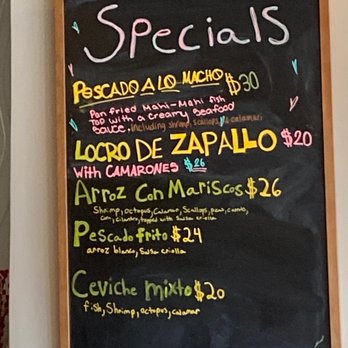 Specials
PESCADO A LO MACHO $30
Pan fried Mahi-Mahi fish
TOP with a creamy seafood
sauce. including shrimp, scallops, & calamari
LOCRO DE ZAPALLO $20
With CAMARONES $26
Arroz Con Mariscos $26
Shrimp, octopus, Calamar, Scallops, peas, carrots,
Corn, Cilantro, topped with Salsa criolla
Pescado frito $24
arroz blanco, Salsa criolla
Ceviche mixto $20
fish, Shrimp, octopus, calamar